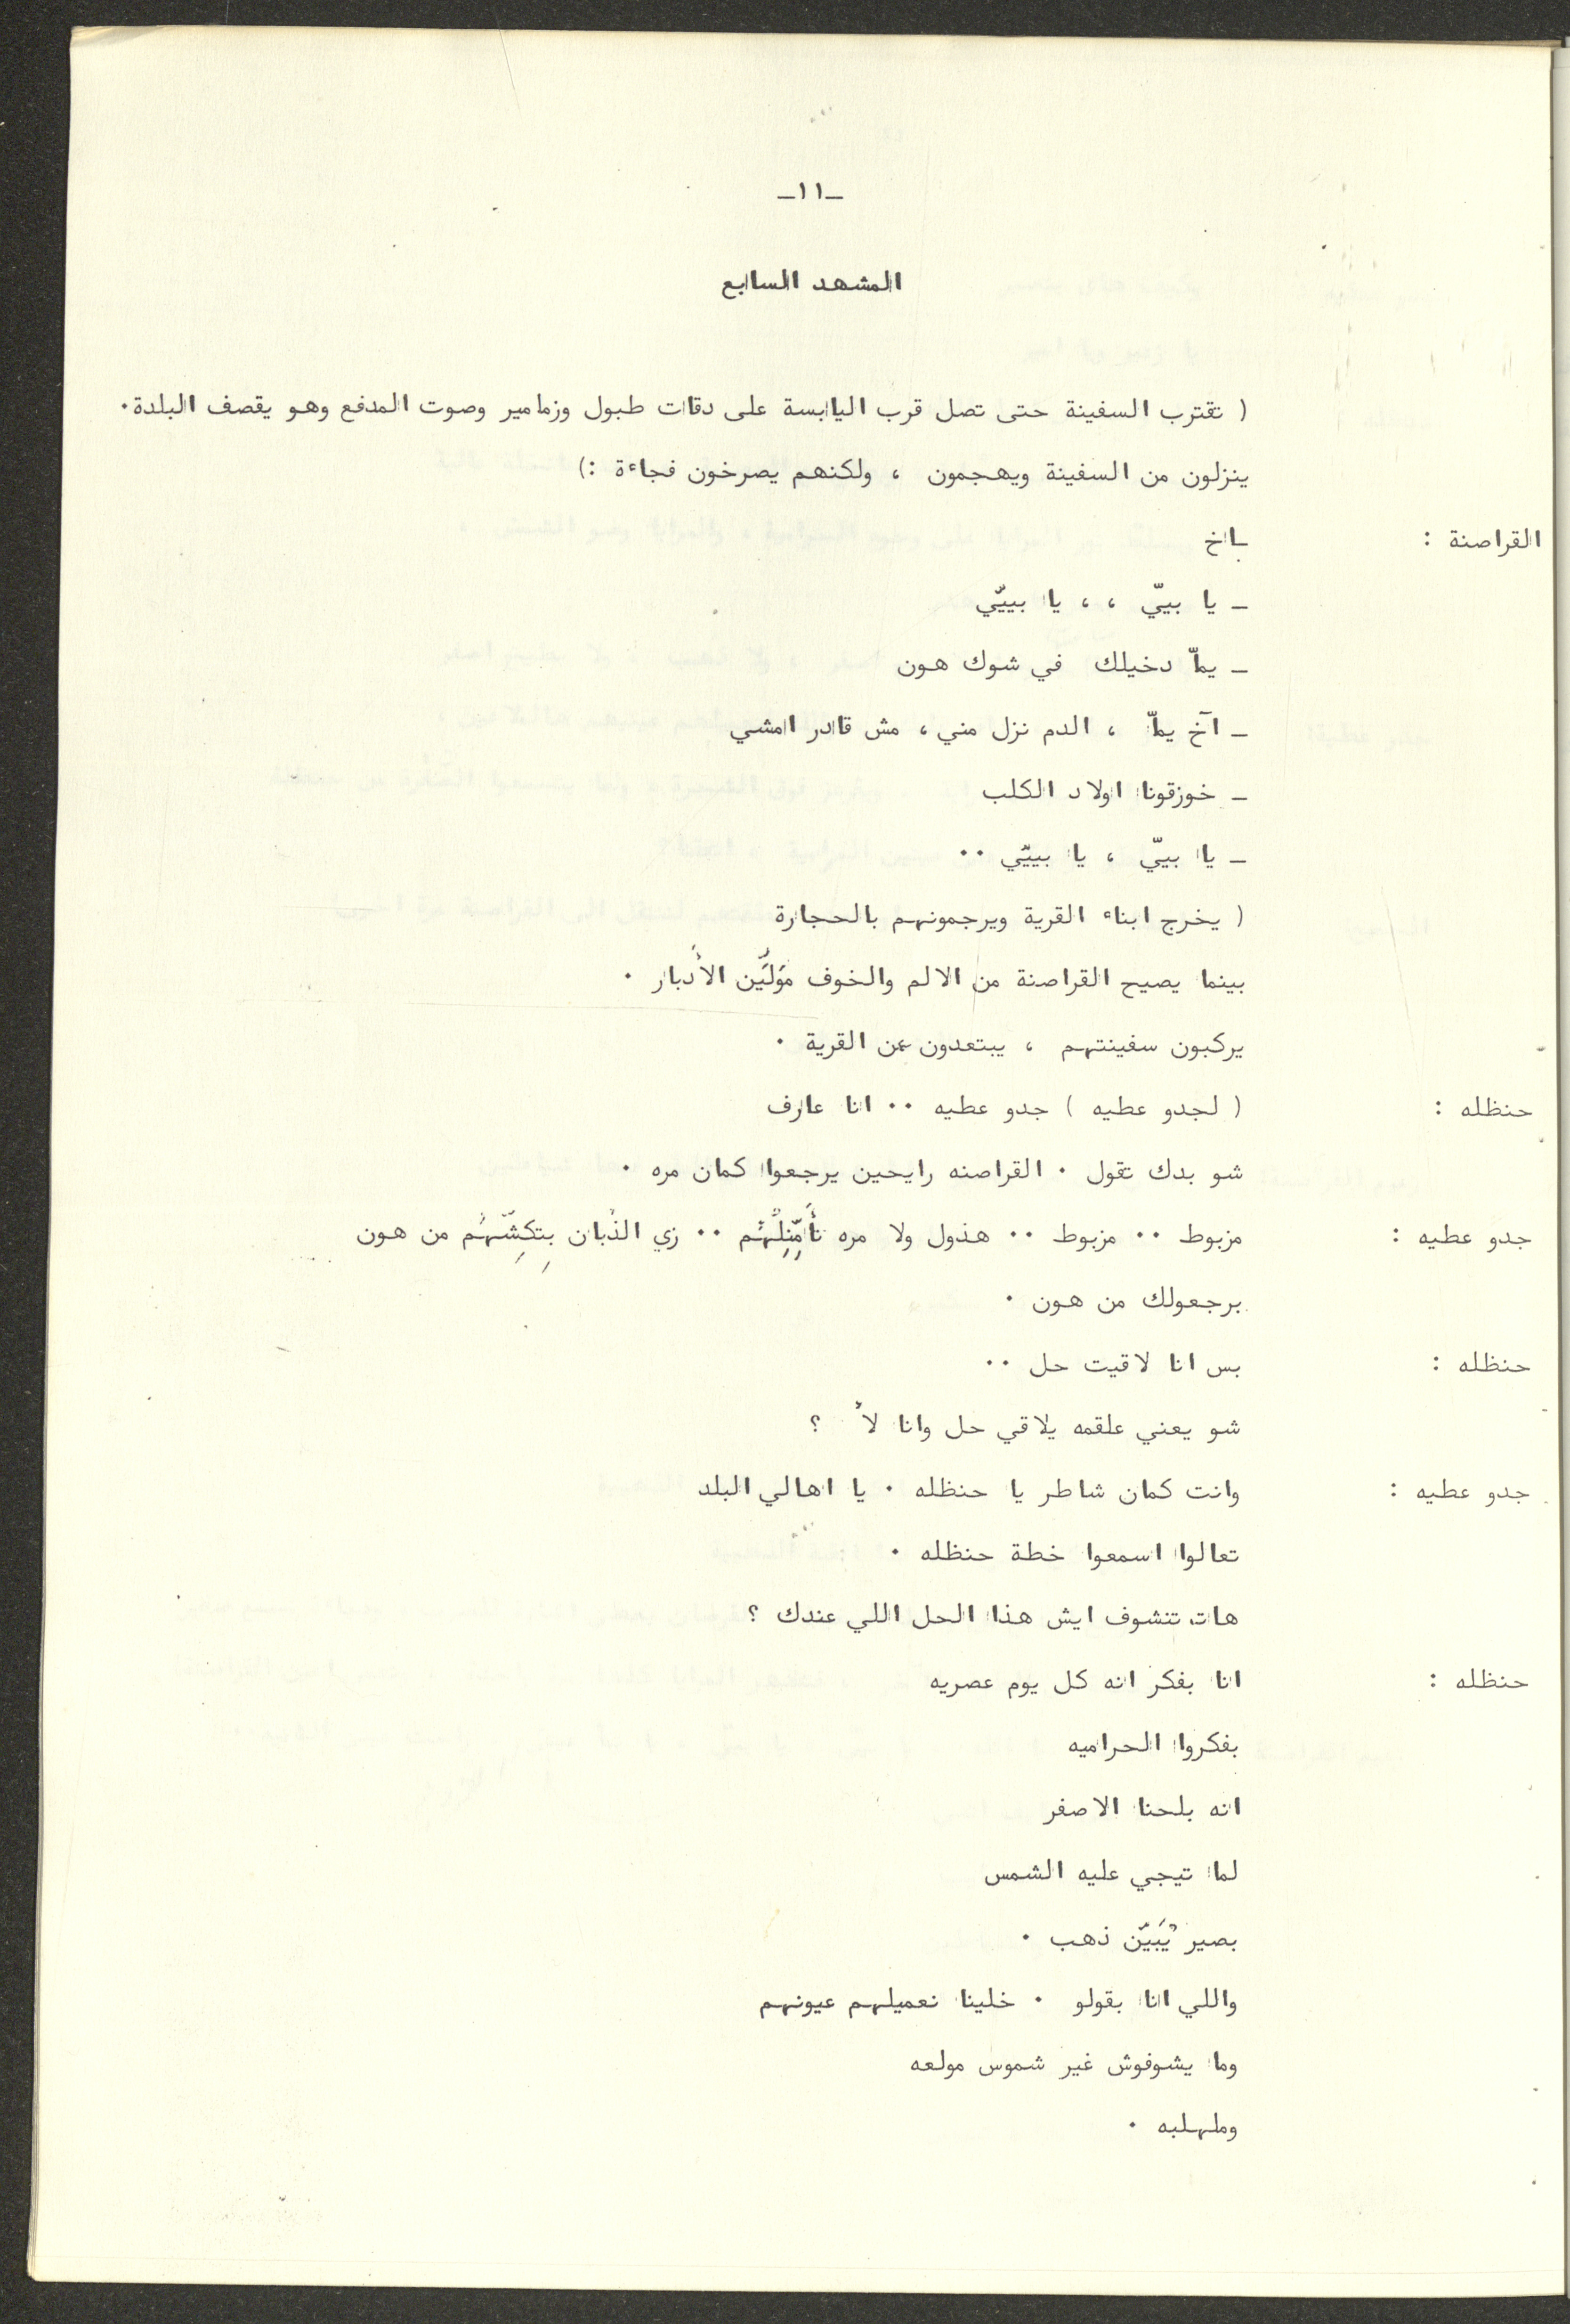 ـ١١ـ
المشهد السابع
( تقترب السفينة حتى تصل قرب اليابسة على دقات طبول وزمامير وصوت المدفع وهو يقصف البلدة.
ينزلون من السفينة ويهجمون ، ولكنهم يصرخون فجاءة :)
القراصنة : باخ
ـ يا بييّ ، ، يا بييّي
ـ يمّا دخيلك في شوك هون
ـ آخ يمّا ، الدم نزل مني ، مش قادر امشي
ـ خوزقونا اولاد الكلب
ـ يا بييّ ، يا بييّي ..
( يخرج ابناء القرية ويرجمونهم بالحجارة
بينما يصيح القراصنة من الالم والخوف مَوَلّيَن الأَدبار .
يركبون سفينتهم ، يبتعدون عن القرية .
حنظله : ( لجدو عطيه ) جدو عطيه .. انا عارف
شو بدك تقول . القراصنه رايحين يرجعوا كمان مره .
جدو عطيه : مزبوط .. مزبوط .. هذول ولا مره تأَمِّنِلْهُم .. زي الذُبان بِتكِشّهُم من هون
برجعولك من هون .
حنظله : بس انا لاقيت حل ..
شو يعني علقمه يلاقي حل وانا لأ ؟
جدو عطيه : وانت كمان شاطر يا حنظله . يا اهالي البلد
تعالوا اسمعوا خطة حنظله .
هات تنشوف ايش هذا الحل اللي عندك ؟
حنظله : انا بفكر انه كل يوم عصريه
بفكروا الحراميه
انه بلحنا الاصفر
لما تيجي عليه الشمس
بصير يْبَيّن ذهب .
واللي انا بقولو . خلينا نعميلهم عيونهم
وما يشوفوش غير شموس مولعه
وملهلبه .